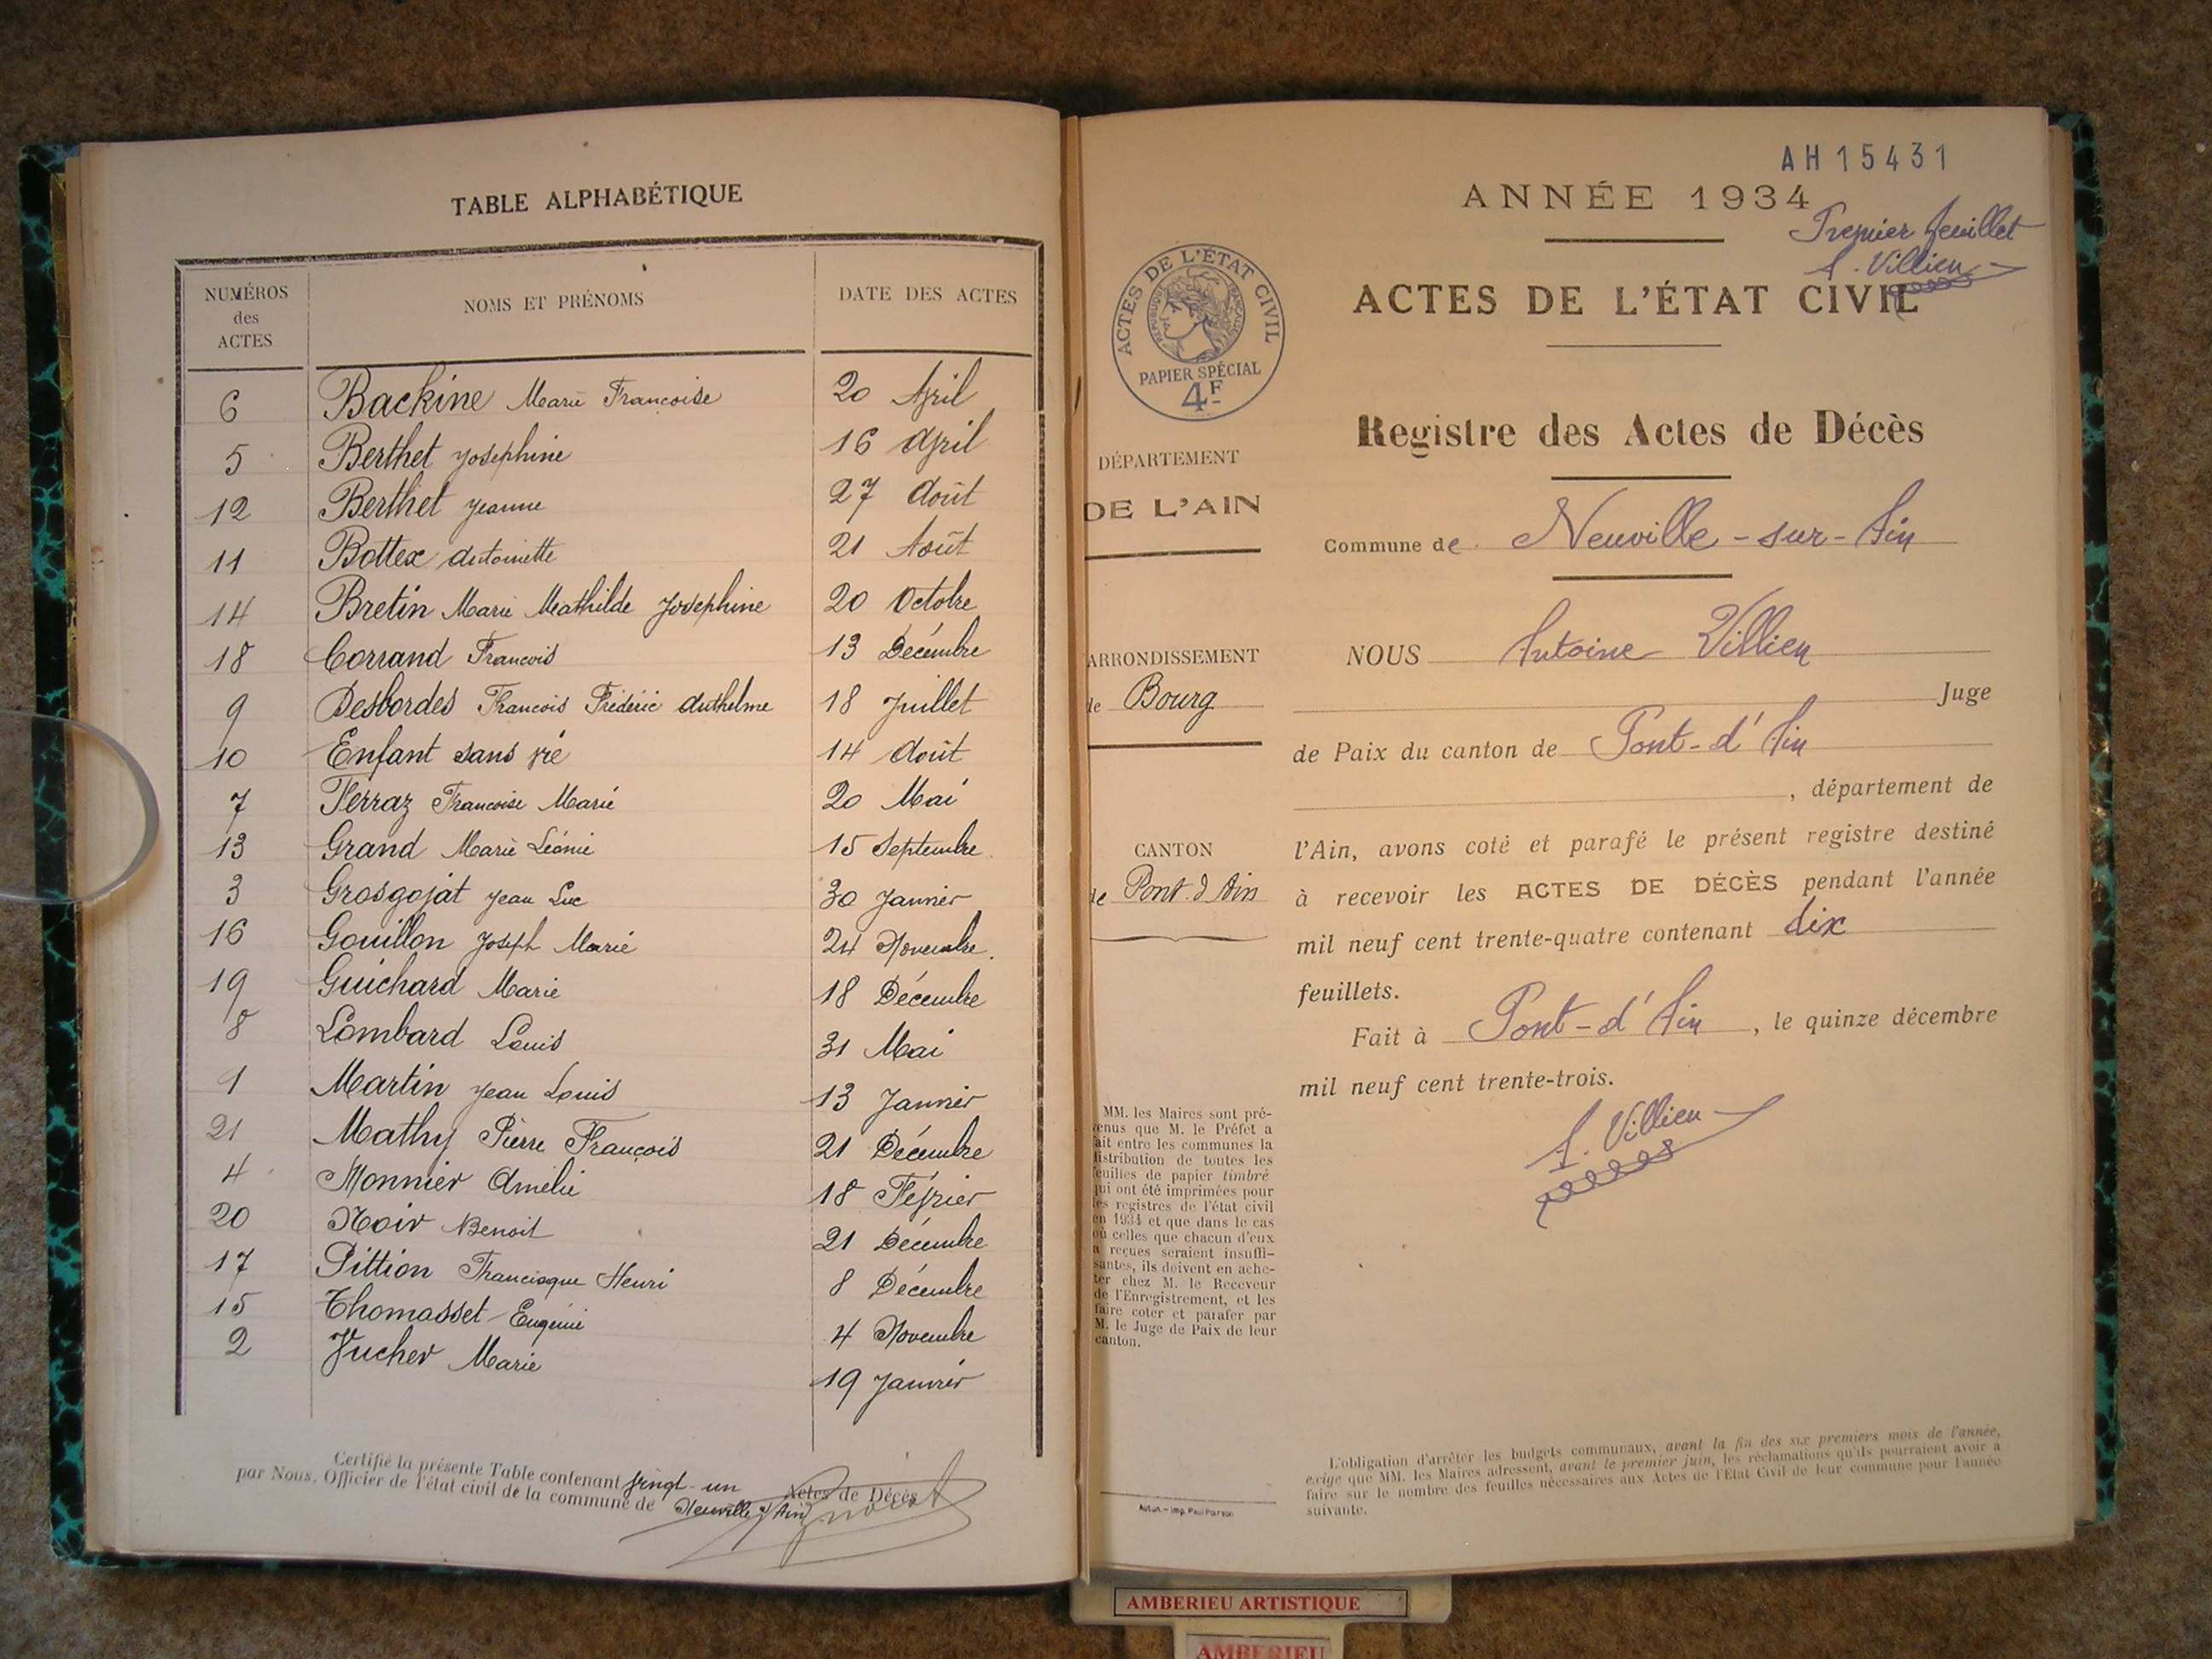 TABLE ALPHABÉTIQUE
NUMÉROS des ACTES NOMS ET PRÉNOMS DATE DES ACTES
6 Backine Marie Françoise 20 Avril
5 Berthet Josephine 16 Avril
12 Berthet Jeanne 27 Août
11 Bottex Antoinette 21 Août
14 Bretin Marie Mathilde Josephine 20 Octobre
18 Corrand Francois 13 Décembre
9 Desbordes Francois Frédéric Anthelme 18 Juillet
10 Enfant sans vie 14 Août
7 Ferraz Francoise Marie 20 Mai
13 Grand Marie Léonie 15 Septembre
3 Grosgojat Jean Luc 30 Janvier
16 Gouillon Joseph Marie 24 Novembre.
19 Guichard Marie 18 Décembre
8 Lombard Louis 31 Mai
1 Martin Jean Louis 13 Janvier
21 Mathy Pierre François 21 Décembre
4 Monnier Amélie 18 Février
20 Noir Benoit 21 Décembre
17 Pittion Francisque Henri 8 Décembre
15 Thomasset Eugénie 4 Novembre
2 Vucher Marie 19 Janvier
Certifié la présente Table contenant vingt-un Actes de Décès
par Nous, Officier de l'état civil de la commune de Neuville s/ Ain
AH15431
ANNÉE 1934
Premier feuillet
A. Villien
ACTES DE L'ÉTAT CIVIL
ACTES DE L'ÉTAT CIVIL
RÉPUBLIQUE FRANÇAISE
PAPIER SPÉCIAL
4F
DÉPARTEMENT
DE L'AIN
ARRONDISSEMENT
de Bourg
CANTON
de Pont d'Ain
MM. les Maires sont pré-
venus que M. le Préfet a
fait entre les communes la
distribution de toutes les
feuilles de papier timbré
qui ont été imprimées pour
les registres de l'état civil
en 1934 et que dans le cas
où celles que chacun d'eux
a reçues seraient insuffi-
santes, ils doivent en ache-
ter chez M. le Receveur
de l'Enregistrement, et les
faire coter et parafer par
M. le Juge de Paix de leur
canton.
Autun. – Imp. Paul
Registre des Actes de Décès
Commune de Neuville-sur-Ain
NOUS Antoine Villien
Juge
de Paix du canton de Pont-d'Ain
, département de
l'Ain, avons coté et parafé le présent registre destiné
à recevoir les ACTES DE DÉCÈS pendant l'année
mil neuf cent trente-quatre contenant dix
feuillets.
Fait à Pont-d'Ain, le quinze décembre
mil neuf cent trente-trois.
A. Villien
L'obligation d'arrêter les budgets communaux, avant la fin des six premiers mois de l'année,
exige que MM. les Maires adressent, avant le premier juin, les réclamations qu'ils pourraient avoir à
faire sur le nombre des feuilles nécessaires aux Actes de l'État Civil de leur commune pour l'année
suivante.
AMBERIEU ARTISTIQUE
AMBERIEU